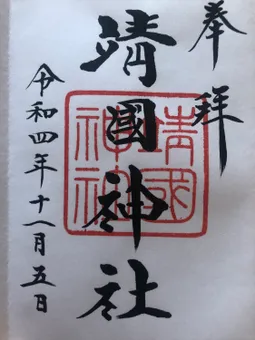 奉拝
靖國神社
靖國
神社
令和四年十一月五日